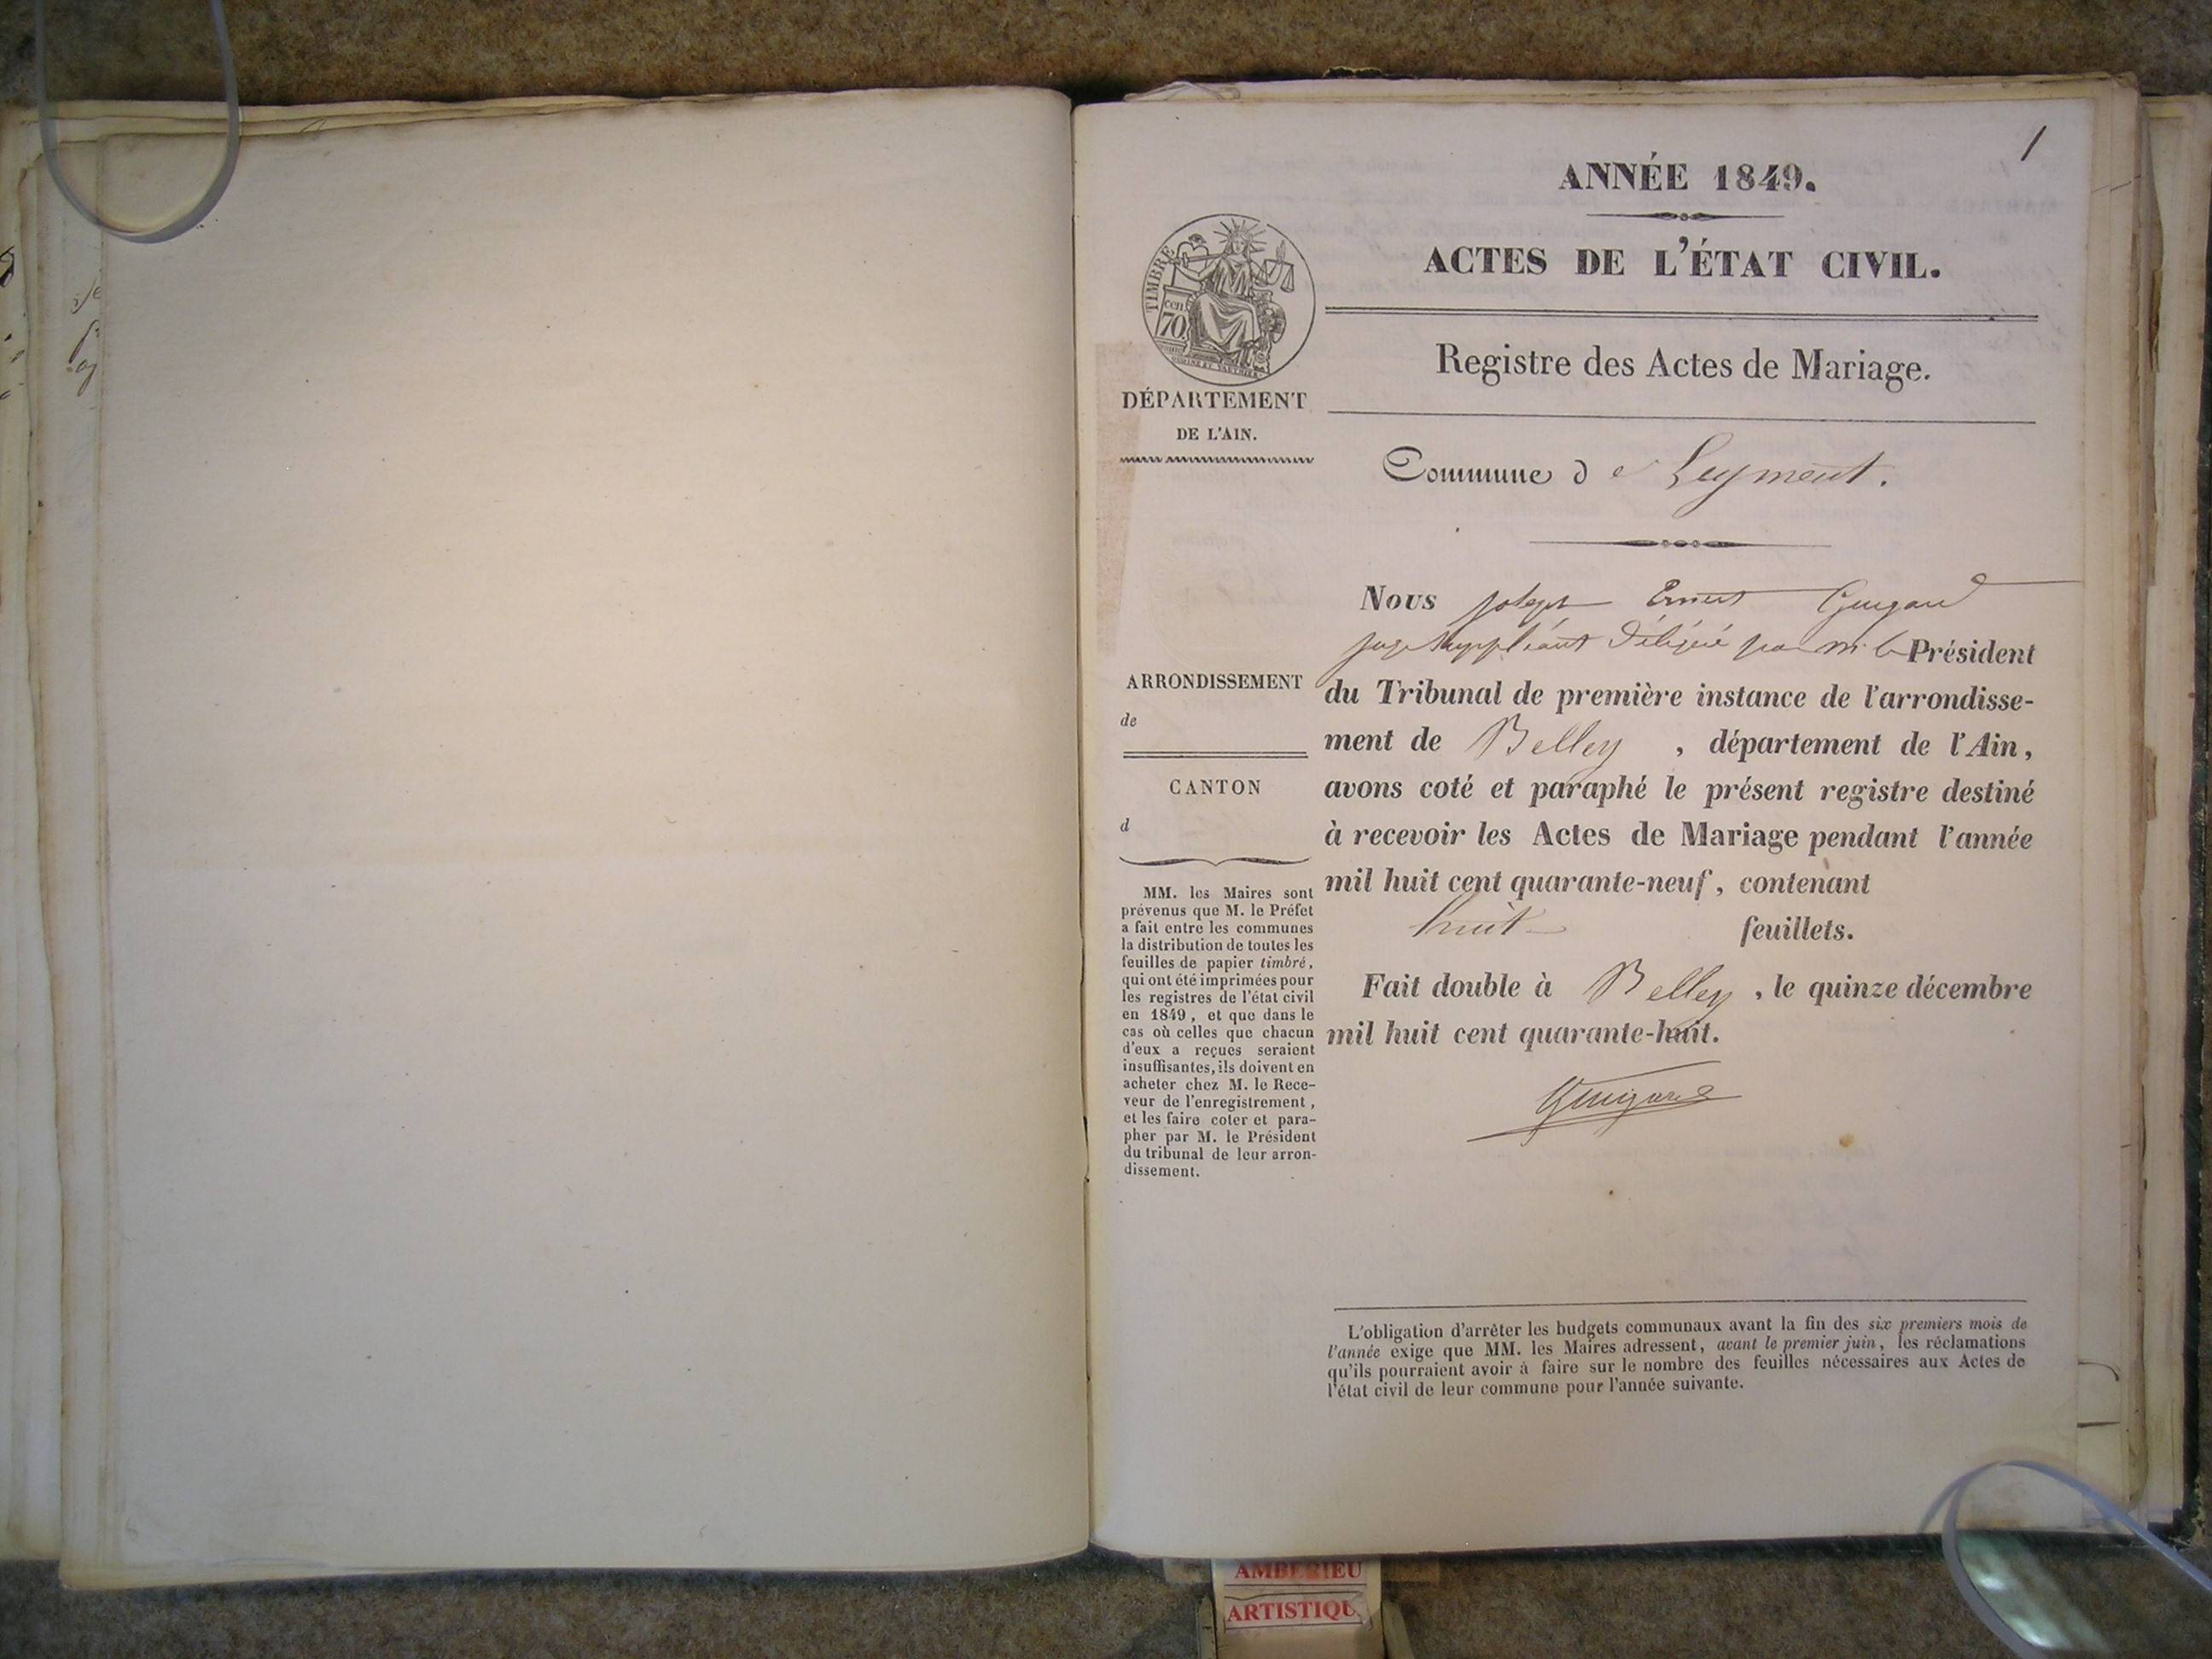 1
ANNÉE 1849.
ACTES DE L'ÉTAT CIVIL.
TIMBRE
cen.
70
Registre des Actes de Mariage.
DÉPARTEMENT
DE L'AIN.
Commune de Leyment.
Nous Joseph Ernest Guigard
juge suppléant délégué par m. le Président
du Tribunal de première instance de l'arrondisse-
ment de Belley , département de l'Ain,
avons coté et paraphé le présent registre destiné
à recevoir les Actes de Mariage pendant l'année
mil huit cent quarante-neuf, contenant
huit feuillets.
Fait double à Belley, le quinze décembre
mil huit cent quarante-huit.
Guigard
ARRONDISSEMENT
de
CANTON
d
MM. les Maires sont
prévenus que M. le Préfet
a fait entre les communes
la distribution de toutes les
feuilles de papier timbré,
qui ont été imprimées pour
les registres de l'état civil
en 1849, et que dans le
cas où celles que chacun
d'eux a reçues seraient
insuffisantes, ils doivent en
acheter chez M. le Rece-
veur de l'enregistrement,
et les faire coter et para-
pher par M. le Président
du tribunal de leur arron-
dissement.
L'obligation d'arrêter les budgets communaux avant la fin des six premiers mois de
l'année exige que MM. les Maires adressent, avant le premier juin, les réclamations
qu'ils pourraient avoir à faire sur le nombre des feuilles nécessaires aux Actes de
l'état civil de leur commune pour l'année suivante.
AMBERIEU
ARTISTIQU